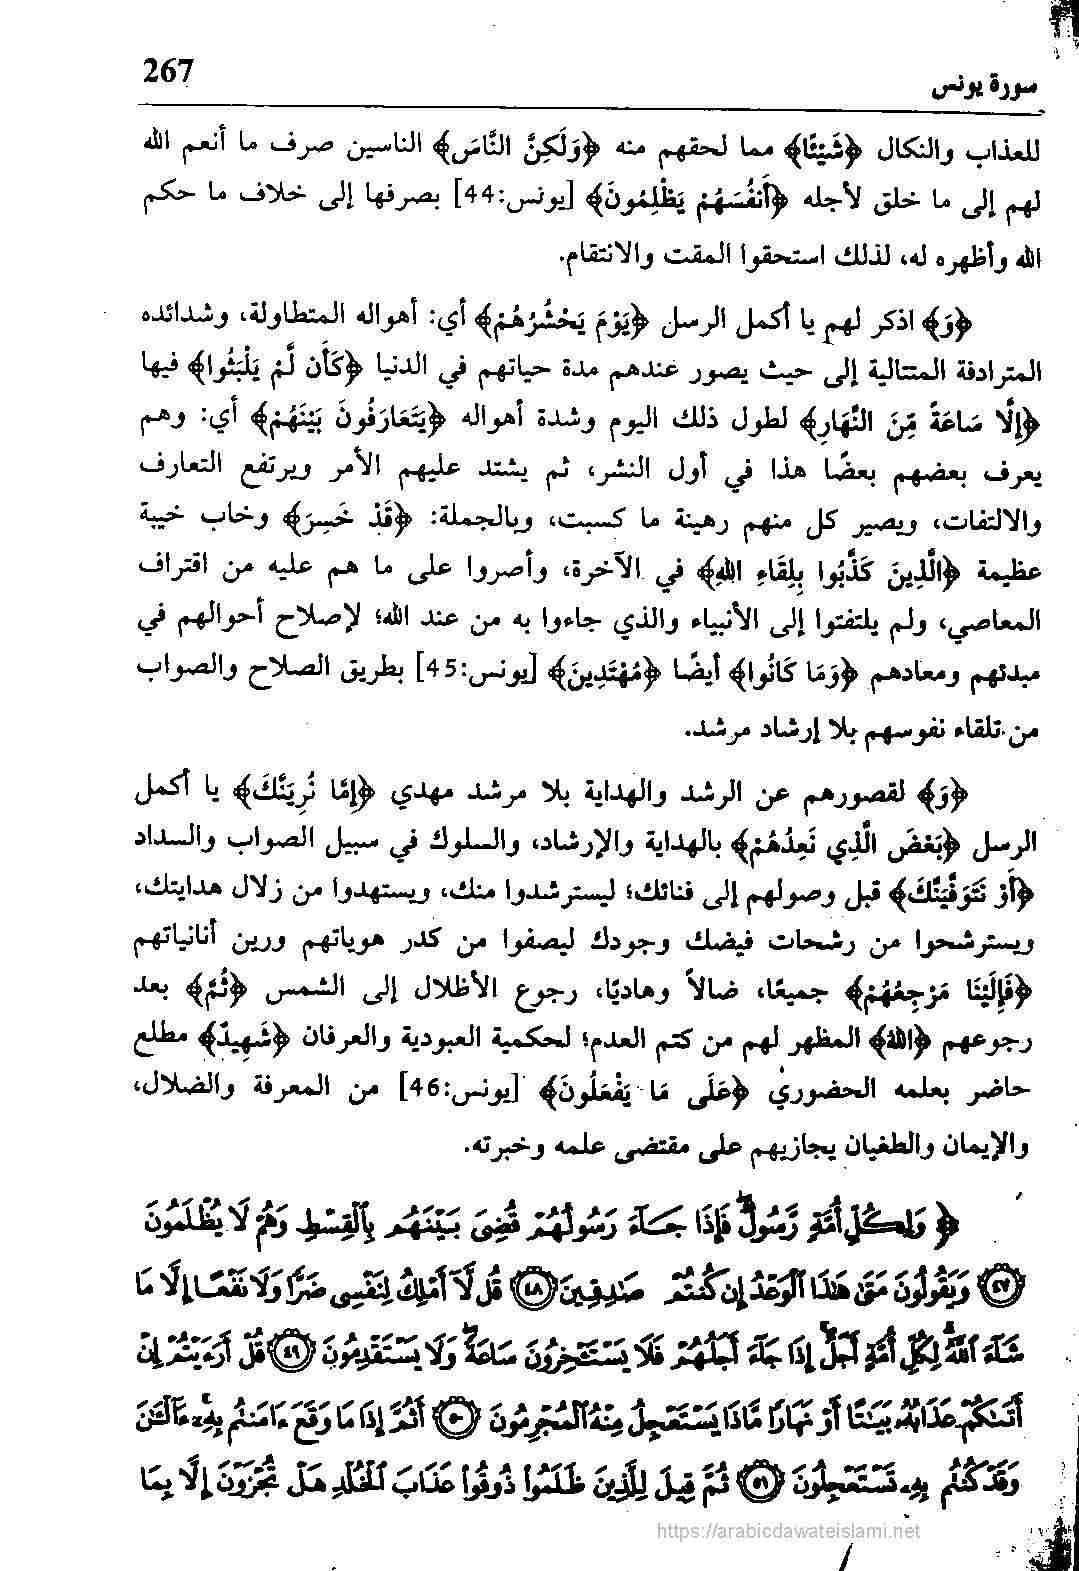 267
سورة يونس
للعذاب والنكال ﴿شَيْئًا﴾ مما لحقهم منه ﴿وَلَكِنَّ النَّاسَ﴾ الناسين صرف ما أنعم الله
لهم إلى ما خلق لأجله ﴿أَنفُسَهُمْ يَظْلِمُونَ﴾ [يونس:44] بصرفها إلى خلاف ما حكم
الله وأظهره له، لذلك استحقوا المقت والانتقام.
﴿وَ﴾ اذكر لهم يا أكمل الرسل ﴿يَوْمَ يَحْشُرُهُمْ﴾ أي: أهواله المتطاولة، وشدائده
المترادفة المتتالية إلى حيث يصور عندهم مدة حياتهم في الدنيا ﴿كَأَن لَّمْ يَلْبَثُوا﴾ فيها
﴿إِلَّا سَاعَةً مِّنَ النَّهَارِ﴾ لطول ذلك اليوم وشدة أهواله ﴿يَتَعَارَفُونَ بَيْنَهُمْ﴾ أي: وهم
يعرف بعضهم بعضًا هذا في أول النشر، ثم يشتد عليهم الأمر ويرتفع التعارف
والالتفات، ويصير كل منهم رهينة ما كسبت، وبالجملة: ﴿قَدْ خَسِرَ﴾ وخاب خيبة
عظيمة ﴿الَّذِينَ كَذَّبُوا بِلِقَاءِ اللهِ﴾ في الآخرة، وأصروا على ما هم عليه من اقتراف
المعاصي، ولم يلتفتوا إلى الأنبياء والذي جاءوا به من عند الله؛ لإصلاح أحوالهم في
مبدئهم ومعادهم ﴿وَمَا كَانُوا﴾ أيضًا ﴿مُهْتَدِينَ﴾ [يونس:45] بطريق الصلاح والصواب
من تلقاء نفوسهم بلا إرشاد مرشد.
﴿وَ﴾ لقصورهم عن الرشد والهداية بلا مرشد مهدي ﴿إِمَّا نُرِيَنَّكَ﴾ يا أكمل
الرسل ﴿بَعْضَ الَّذِي نَعِدُهُمْ﴾ بالهداية والإرشاد، والسلوك في سبيل الصواب والسداد
﴿أَوْ نَتَوَفَّيَنَّكَ﴾ قبل وصولهم إلى فنائك؛ ليسترشدوا منك، ويستهدوا من زلال هدايتك،
ويسترشحوا من رشحات فيضك وجودك ليصفوا من كدر هوياتهم ورين أنانياتهم
﴿فَإِلَيْنَا مَرْجِعُهُمْ﴾ جميعًا، ضالاً وهاديًا، رجوع الأظلال إلى الشمس ﴿ثُمَّ﴾ بعد
رجوعهم ﴿اللهُ﴾ المظهر لهم من كتم العدم؛ لحكمية العبودية والعرفان ﴿شَهِيدٌ﴾ مطلع
حاضر بعلمه الحضوري ﴿عَلَى مَا يَفْعَلُونَ﴾ [يونس:46] من المعرفة والضلال،
والإيمان والطغيان يجازيهم على مقتضى علمه وخبرته.
﴿ وَلِكُلِّ أُمَّةٍ رَّسُولٌ ۖ فَإِذَا جَآءَ رَسُولُهُمْ قُضِىَ بَيْنَهُم بِٱلْقِسْطِ وَهُمْ لَا يُظْلَمُونَ
٤٧ وَيَقُولُونَ مَتَىٰ هَٰذَا ٱلْوَعْدُ إِن كُنتُمْ صَٰدِقِينَ ٤٨ قُل لَّآ أَمْلِكُ لِنَفْسِى ضَرًّا وَلَا نَفْعًا إِلَّا مَا
شَآءَ ٱللَّهُ ۗ لِكُلِّ أُمَّةٍ أَجَلٌ ۚ إِذَا جَآءَ أَجَلُهُمْ فَلَا يَسْتَـْٔخِرُونَ سَاعَةً ۖ وَلَا يَسْتَقْدِمُونَ ٤٩ قُلْ أَرَءَيْتُمْ إِنْ
أَتَىٰكُمْ عَذَابُهُۥ بَيَٰتًا أَوْ نَهَارًا مَّاذَا يَسْتَعْجِلُ مِنْهُ ٱلْمُجْرِمُونَ ٥٠ أَثُمَّ إِذَا مَا وَقَعَ ءَامَنتُم بِهِۦٓ ۚ ءَآلْـَٰٔنَ
وَقَدْ كُنتُم بِهِۦ تَسْتَعْجِلُونَ ٥١ ثُمَّ قِيلَ لِلَّذِينَ ظَلَمُوا۟ ذُوقُوا۟ عَذَابَ ٱلْخُلْدِ هَلْ تُجْزَوْنَ إِلَّا بِمَا
https://arabicdawateislami.net